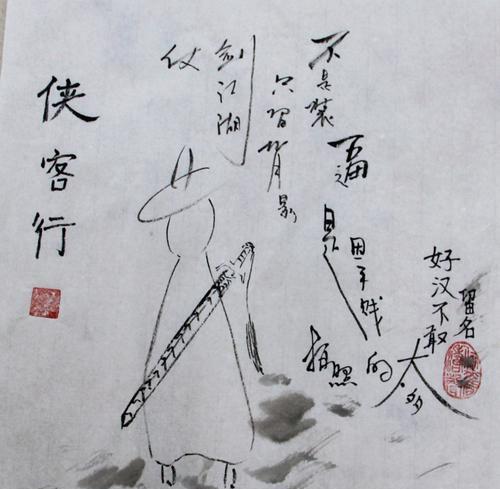 侠客行
仗
剑江湖
只留背影
不是装
逼
是
因手贱
拍照
的
太多
好汉不敢
留名